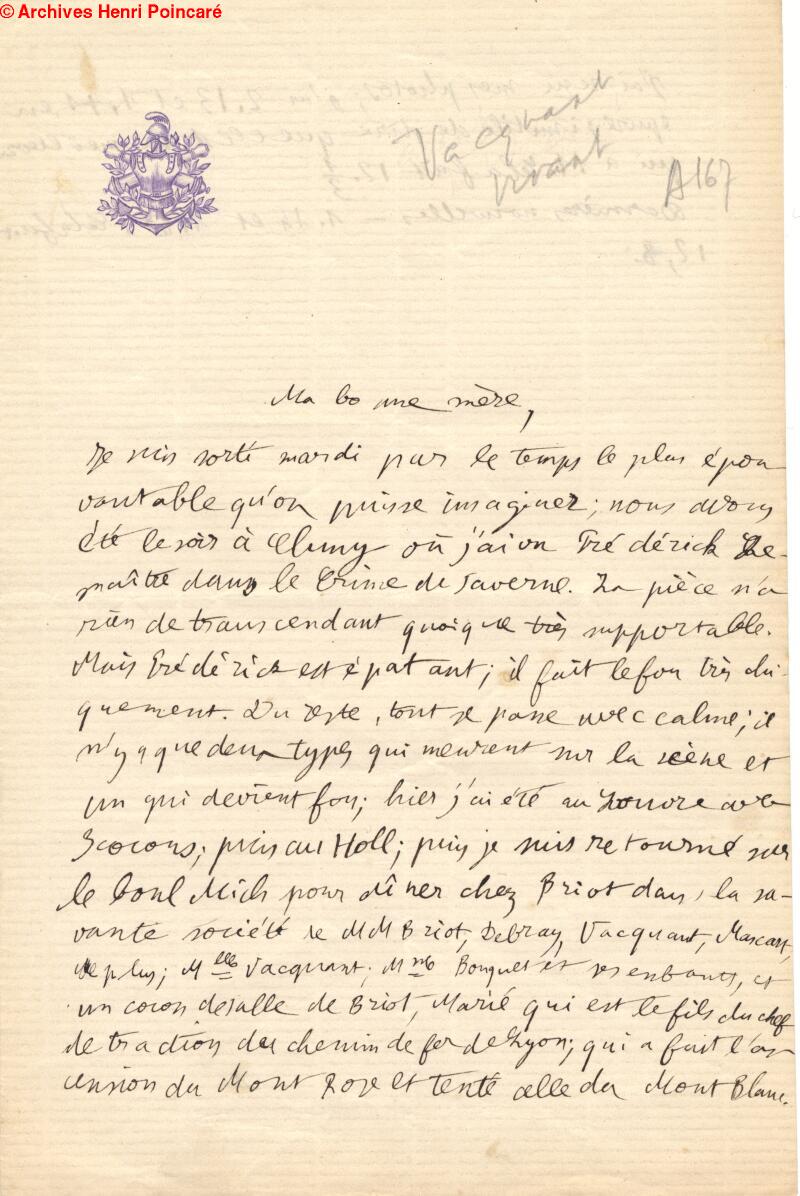 © Archives Henri Poincaré
Vacquant
A167
Ma bonne mère,
Je suis sorti mardi par le temps le plus épou
vantable qu'on puisse imaginer; nous avons
été le soir à Cluny où j'ai vu Frédérick Le-
maître dans le Crime de Faverne. La pièce n'a
rien de transcendant quoique très supportable.
Mais Frédérick est épatant; il fait le fou très chi-
quement. Du reste, tout se passe avec calme; il
n'y a que deux types qui meurent sur la scène et
un qui devient fou; hier j'ai été au Louvre avec
3 cocons; puis au Holl; puis je suis retourné sur
le boul Mich pour dîner chez Briot dans la sa-
vante société de MM Briot, Debray, Vacquant, Mascart,
de plus; Mlle Vacquant; Mme Bouquet et ses enfants, et
un cocon de salle de Briot, Marié qui est le fils du chef
de traction du chemin de fer de Lyon; qui a fait l'as
cension du Mont Rose et tenté celle du Mont Blanc.